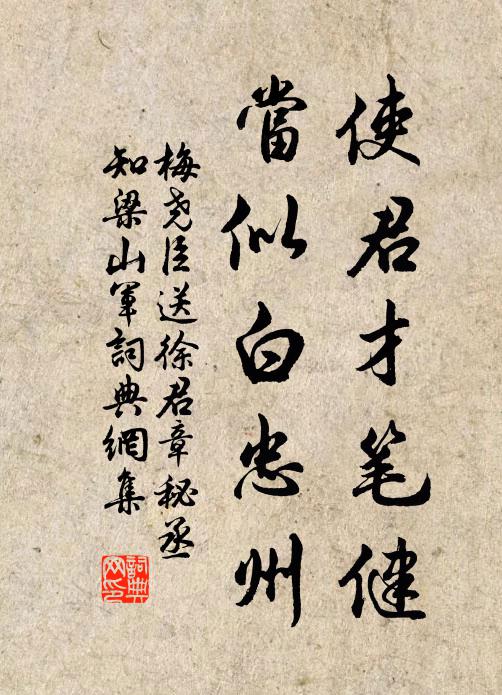 使君才笔健
當似白忠州
梅尧臣送徐君章秘丞
知梁山軍詞典網集
詞典
网印